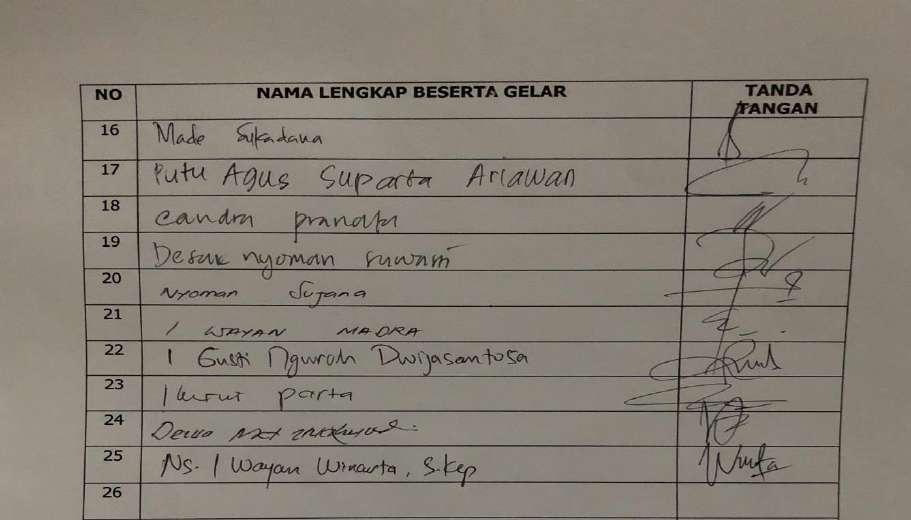 NO NAMA LENGKAP BESERTA GELAR TANDA TANGAN
16 Made Sukadana
17 Putu Agus Suparta Ariawan
18 Candra pranata
19 Desak nyoman suwarni
20 Nyoman Sujana
21 I WAYAN MADRA
22 I Gusti Ngurah Dwijasantosa
23 I Ketut parta
24 Dewa
25 Ns. I Wayan Winarta, S.Kep
26